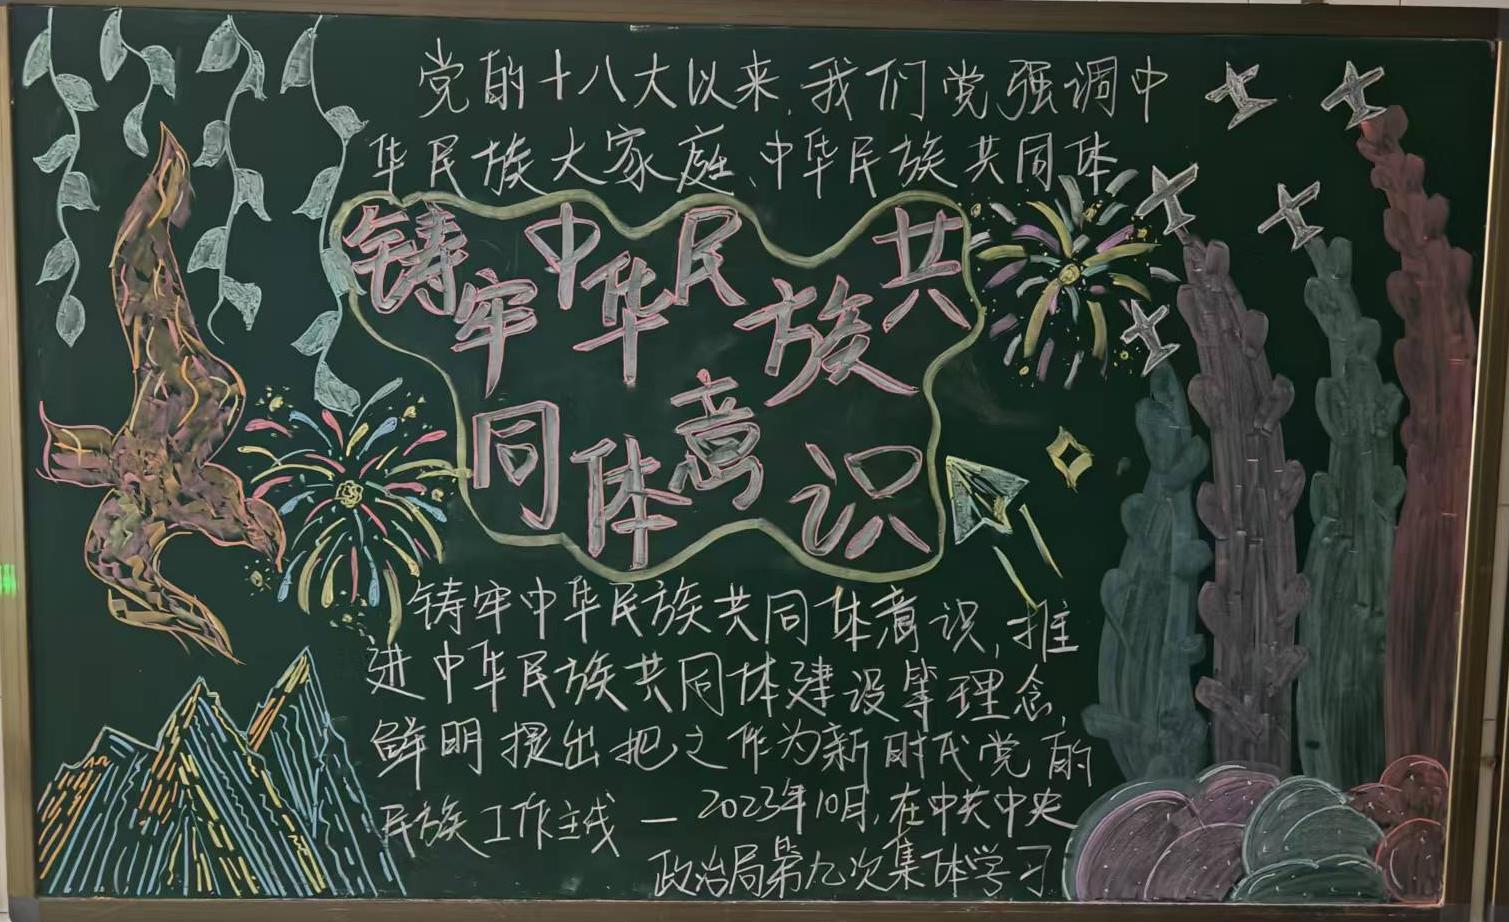 党的十八大以来,我们党强调中
华民族大家庭、中华民族共同体
铸牢中华民族共
同体意识
铸牢中华民族共同体意识,推
进中华民族共同体建设等理念,
鲜明提出把之作为新时代党的
民族工作主线 — 2023年10月,在中共中央
政治局第九次集体学习